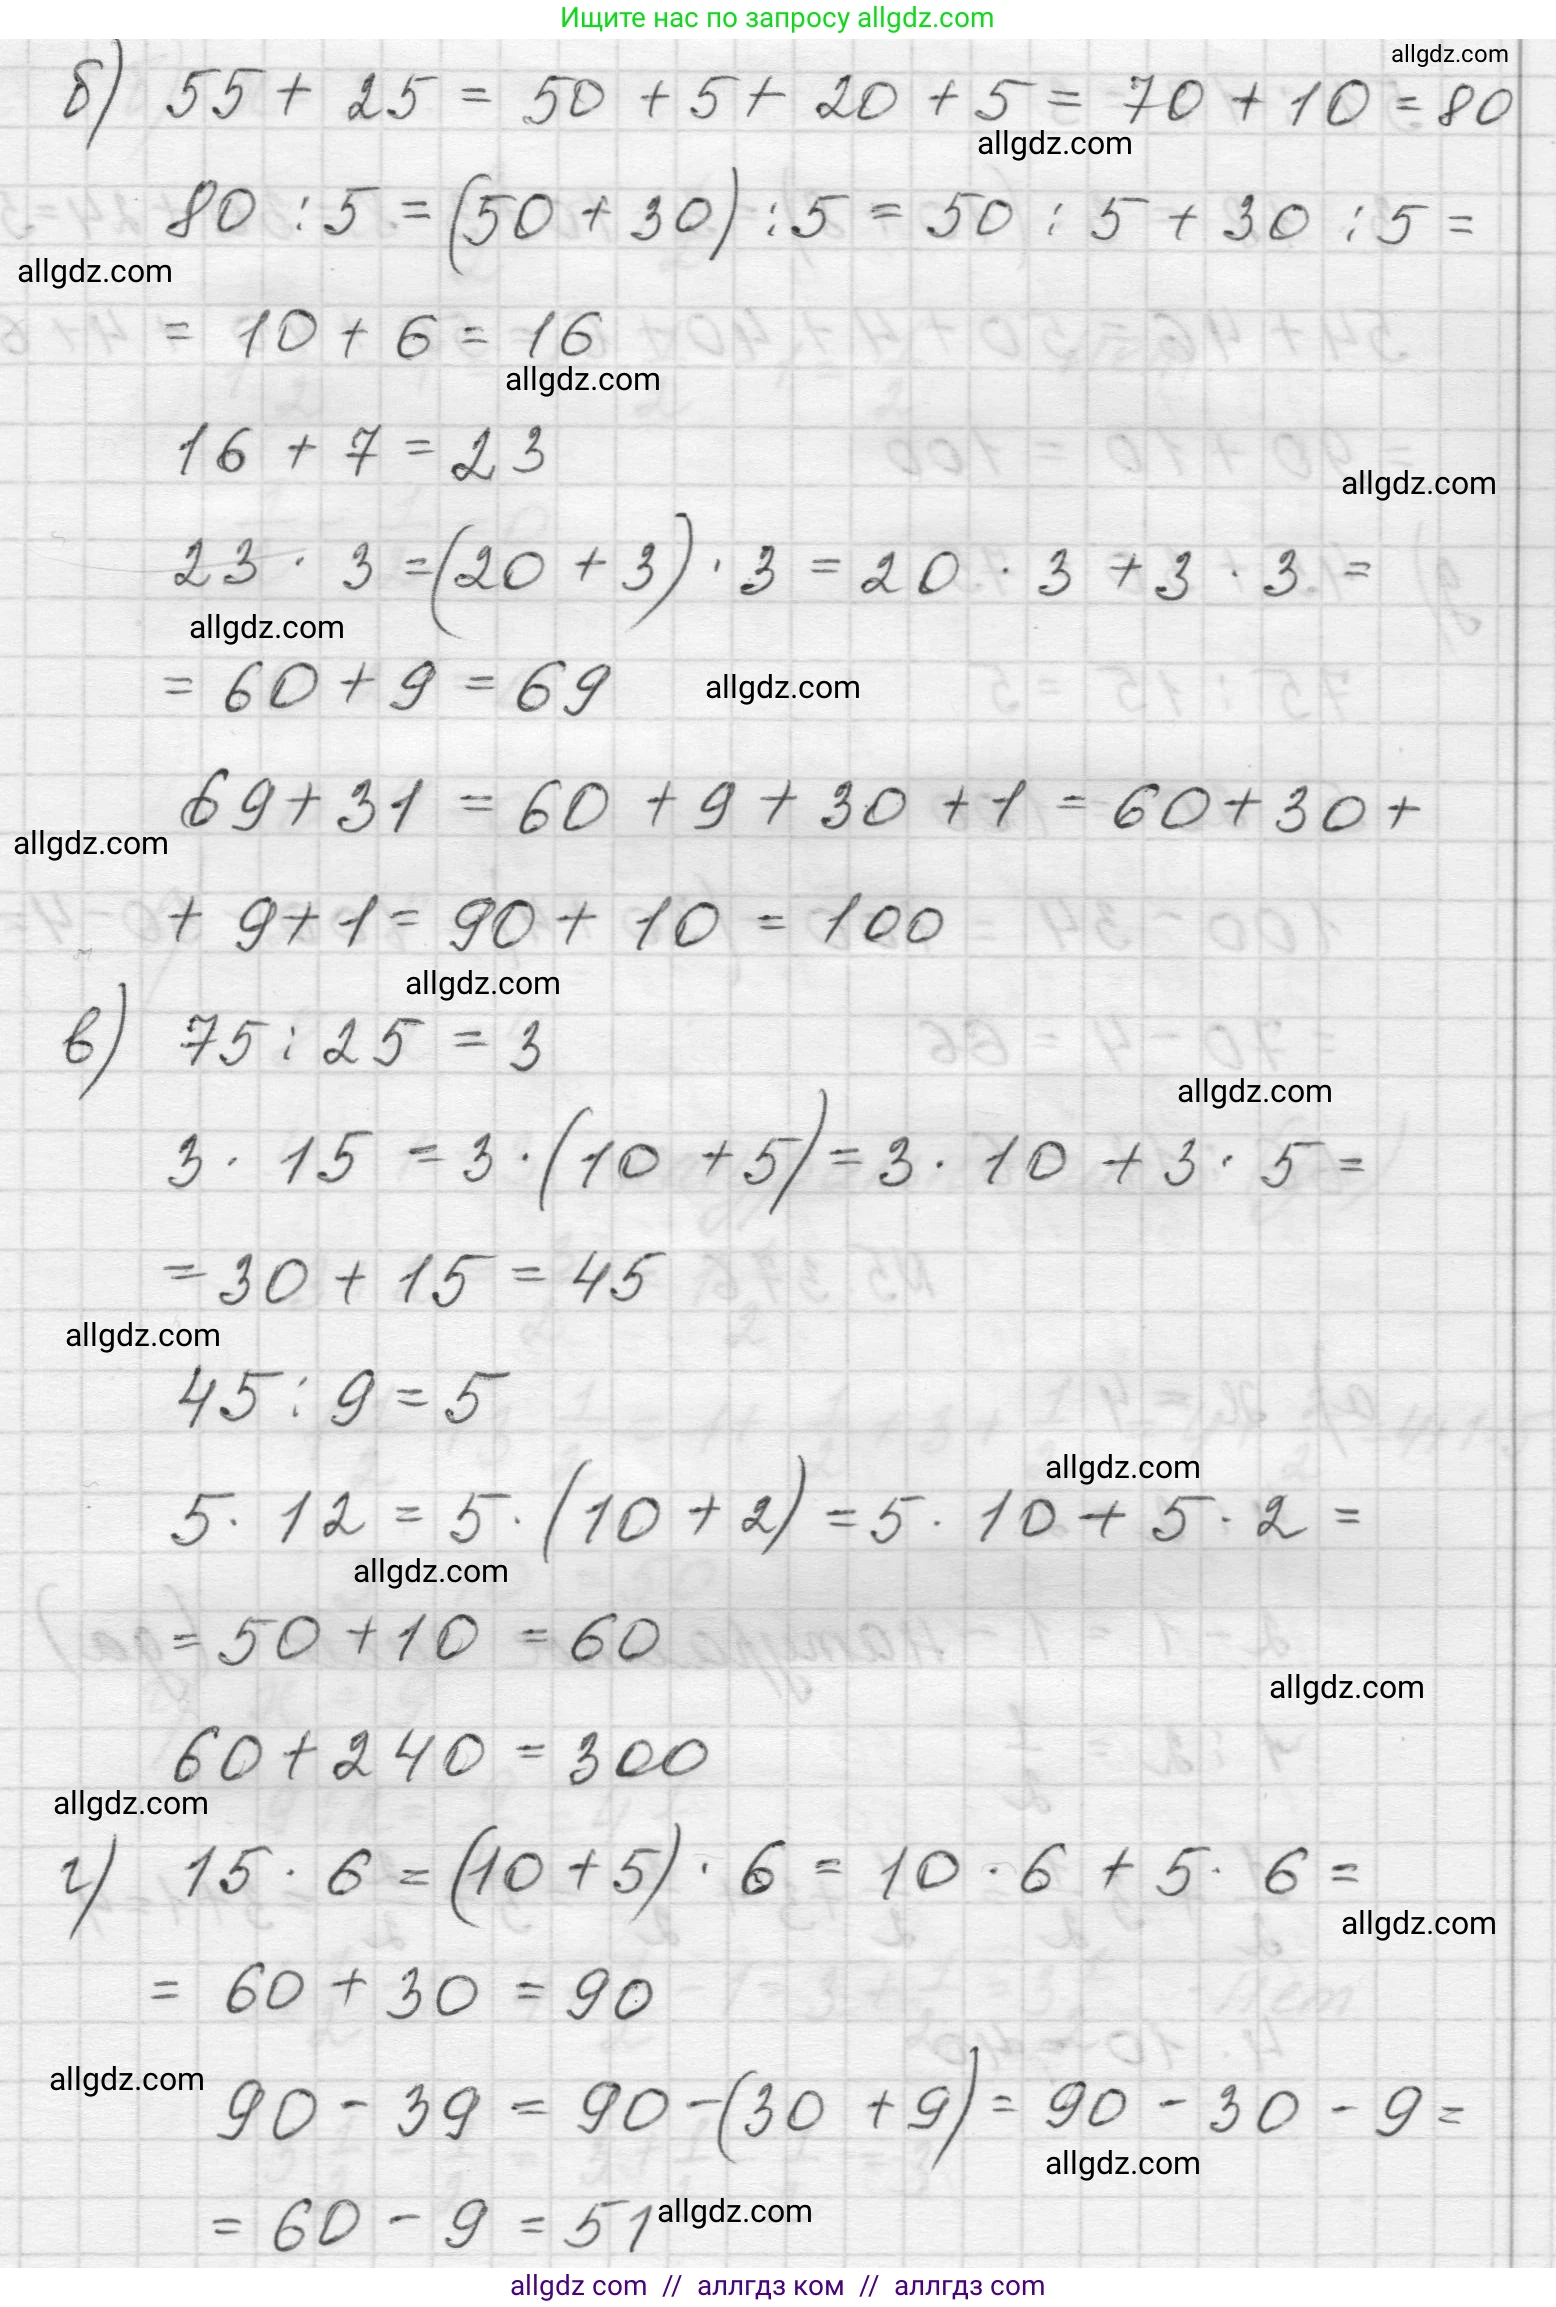 Ищите нас по запросу allgdz.com
allgdz.com
б) 55 + 25 = 50 + 5 + 20 + 5 = 70 + 10 = 80
allgdz.com
80 : 5 = (50 + 30) : 5 = 50 : 5 + 30 : 5 =
allgdz.com
= 10 + 6 = 16
allgdz.com
16 + 7 = 23
allgdz.com
23 · 3 = (20 + 3) · 3 = 20 · 3 + 3 · 3 =
allgdz.com
= 60 + 9 = 69
allgdz.com
69 + 31 = 60 + 9 + 30 + 1 = 60 + 30 +
allgdz.com
+ 9 + 1 = 90 + 10 = 100
allgdz.com
в) 75 : 25 = 3
allgdz.com
3 · 15 = 3 · (10 + 5) = 3 · 10 + 3 · 5 =
= 30 + 15 = 45
allgdz.com
45 : 9 = 5
allgdz.com
5 · 12 = 5 · (10 + 2) = 5 · 10 + 5 · 2 =
allgdz.com
= 50 + 10 = 60
allgdz.com
60 + 240 = 300
allgdz.com
г) 15 · 6 = (10 + 5) · 6 = 10 · 6 + 5 · 6 =
allgdz.com
= 60 + 30 = 90
allgdz.com
90 - 39 = 90 - (30 + 9) = 90 - 30 - 9 =
allgdz.com
= 60 - 9 = 51
allgdz.com
allgdz com // аллгдз ком // аллгдз com